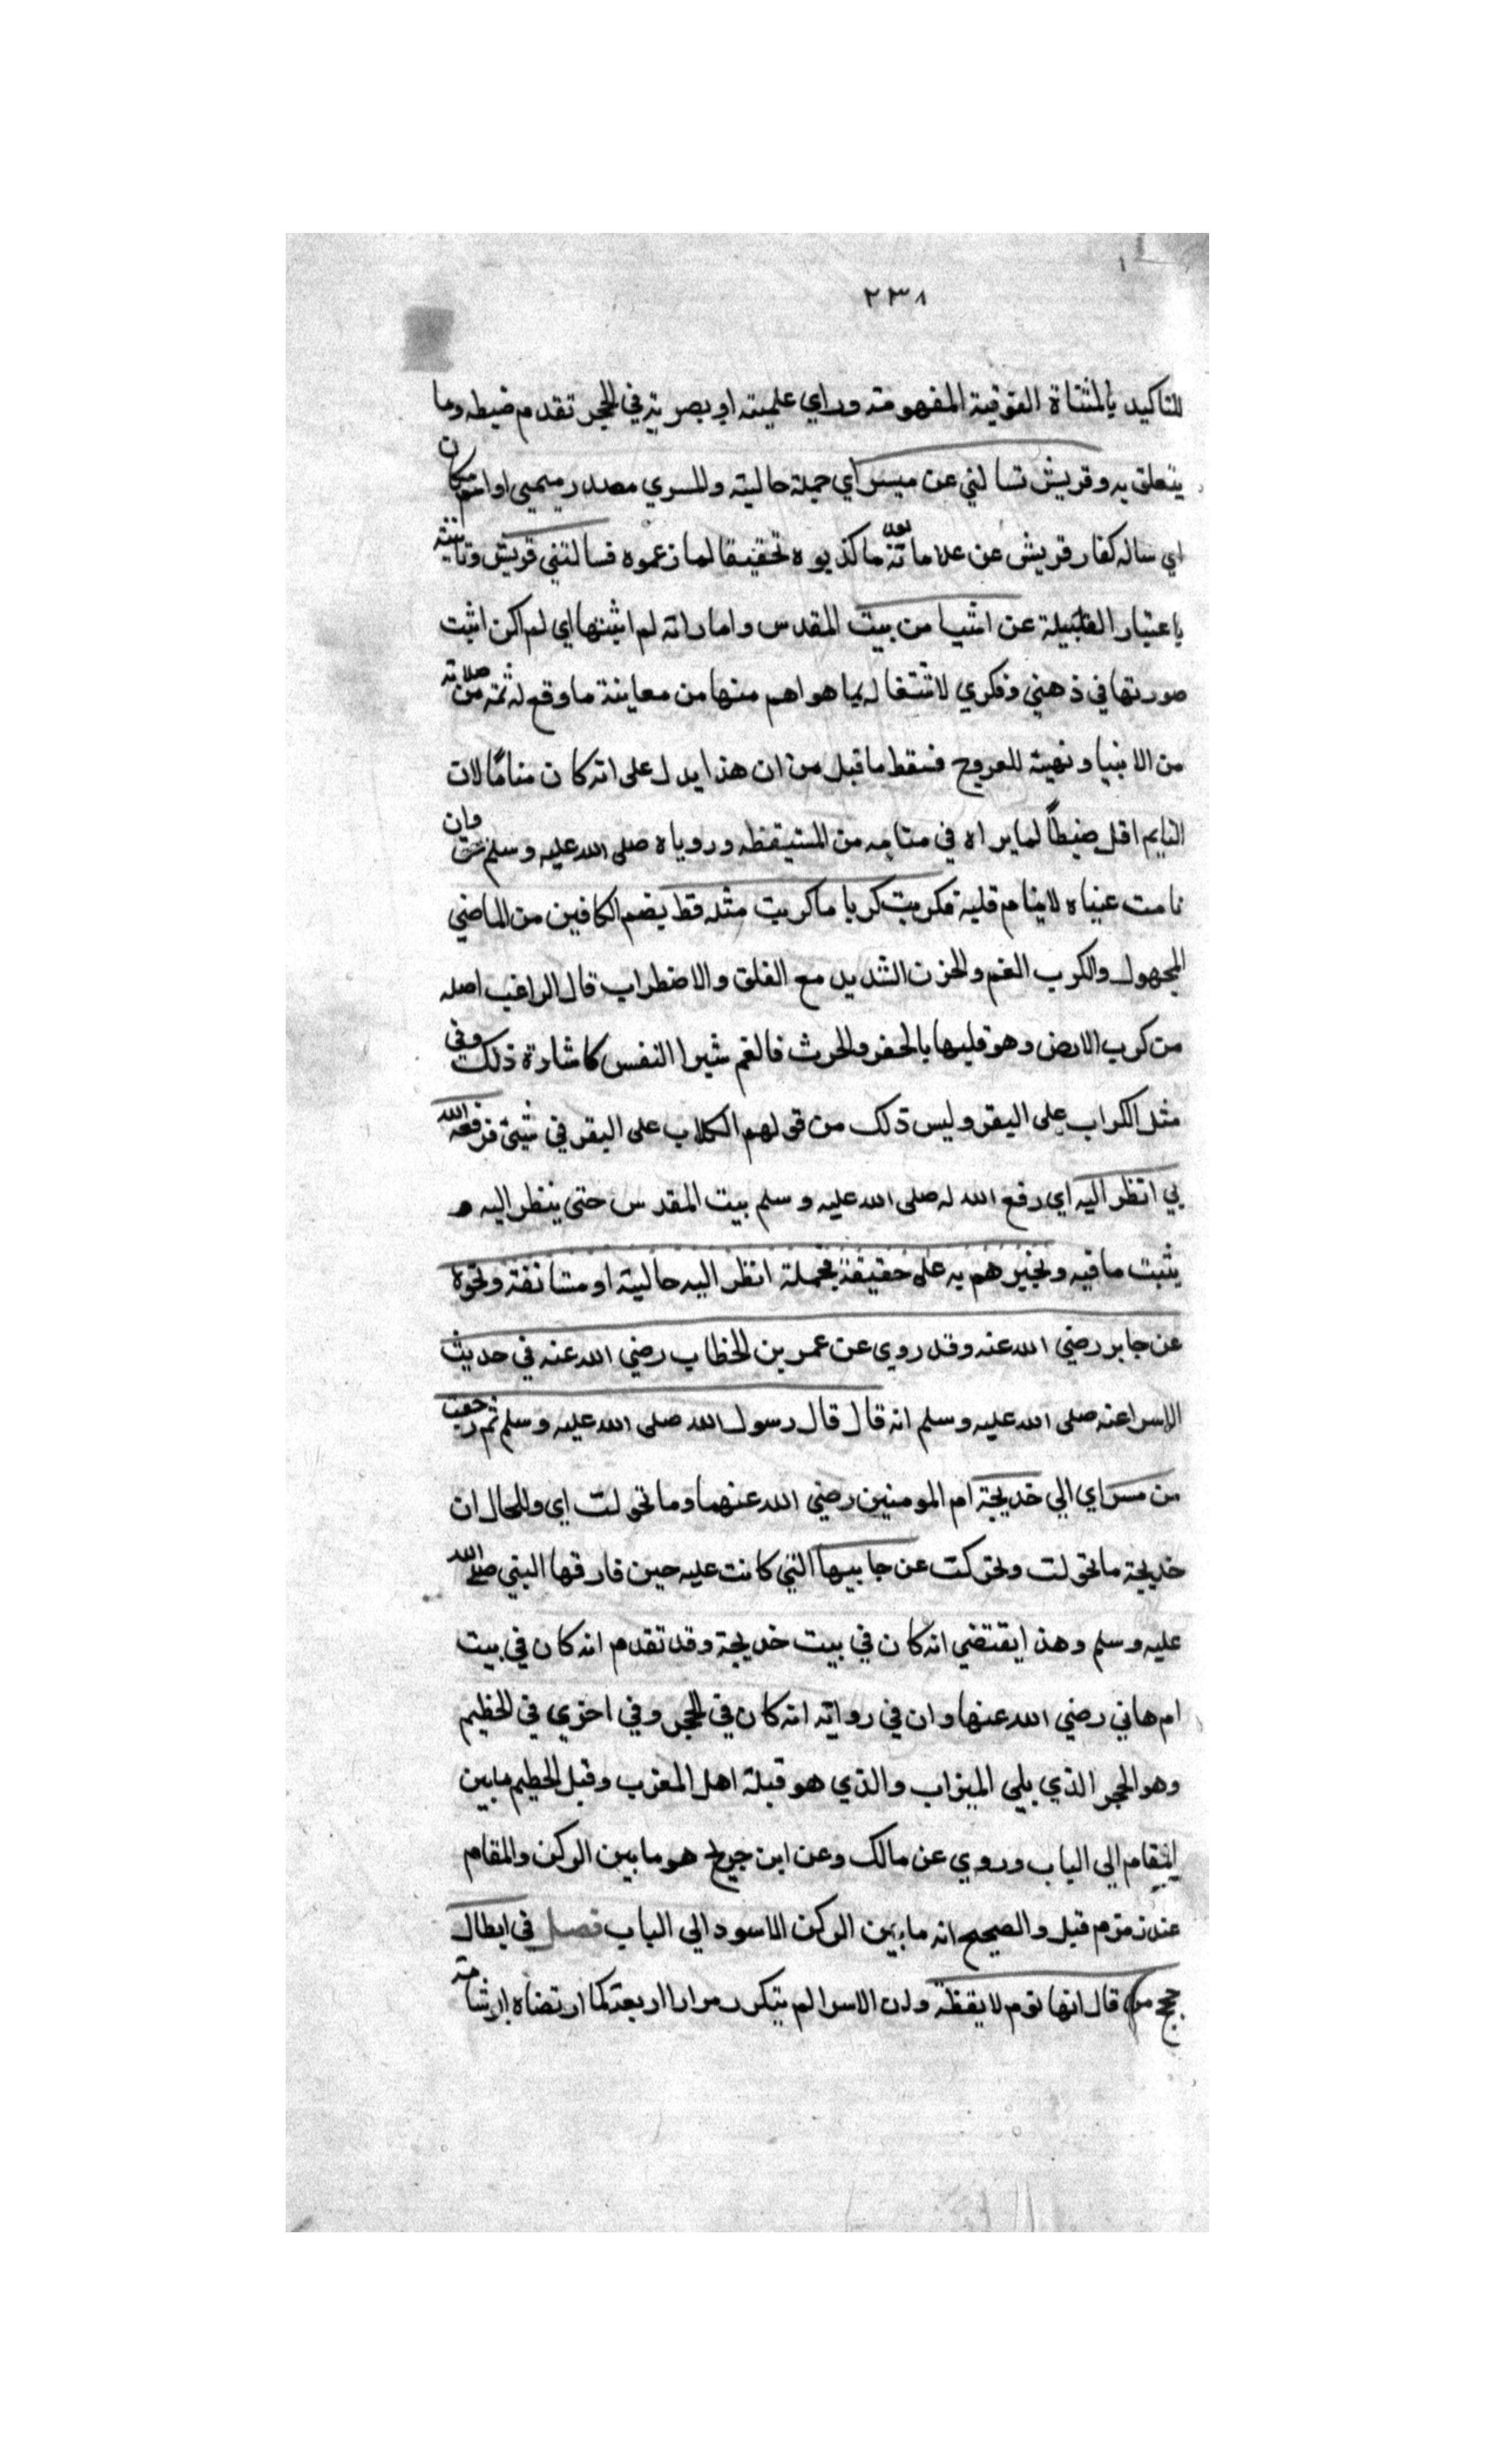 ٢٣٨
للتاكيد بالمثناة الفوقية المفهومة وراي علمية او بصرية في الحجر تقدم ضبطه وما
يتعلق به وقريش تسالني عن مسراي جملة حالية والمسري مصدر ميمي او اسم مكان
اي ساله كفار قريش عن علاماته بعد ما كذبوه تحقيقا لما زعموه فسالتني قريش وتانيثه
باعتبار القبيلة عن اشيا من بيت المقدس واماراته لم اثبتها اي لم اكن اثبت
صورتها في ذهني وفكري لاشتغاله بما هو اهم منها من معاينة ما وقع له ثمه من صلاته
من الانبيا وتهيئه للعروج فسقط ما قيل من ان هذا يدل على انه كان مناما لان
النايم اقل ضبطاً لما يراه في منامه من المستيقظه وروياه صلى الله عليه وسلم حق وان
نامت عيناه لا ينام قلبه فكربت كربا ما كربت مثله قط بضم الكافين من الماضي
المجهول والكرب الغم والحزن الشديد مع القلق والاضطراب قال الراغب اصله
من كرب الارض وهو قلبها بالحفر والحرث فالغم شيرا النفس كاشارة ذلك وفي
مثل الكراب على البقر وليس ذلك من قولهم الكلاب على البقر في شيئ فرفعه الله
لي انظر اليه اي رفع الله له صلى الله عليه وسلم بيت المقدس حتى ينظر اليه و
يثبت ما فيه ويخبرهم به على حقيقة فجملة انظر اليه حالية او مستانفة ونحوه
عن جابر رضي الله عنه وقد روي عن عمر بن الخطاب رضي الله عنه في حديث
الاسرا عنه صلى الله عليه وسلم انه قال قال رسول الله صلى الله عليه وسلم ثم رجعت
من مسراي الي خديجة ام المومنين رضي الله عنهما وما تحولت اي والحال ان
خديجة ما تحولت وتحركت عن جانبها التي كانت عليه حين فارقها النبي صلى الله
عليه وسلم وهذا يقتضي انه كان في بيت خديجة وقد تقدم انه كان في بيت
ام هاني رضي الله عنها وان في رواية انه كان في الحجر وفي اخري في الحطيم
وهو الحجر الذي يلي الميزاب والذي هو قبلة اهل المغرب وقيل الحطيم ما بين
المقام الي الباب وروي عن مالك وعن ابن جريج هو ما بين الركن والمقام
عند زمزم قيل والصحيح انه ما بين الركن الاسود الي الباب فصل في ابطال
حجج من قال انها نوم لا يقظة ولان الاسرا لم يتكرر مرارا اربعة كما ارتضاه ابو شامة